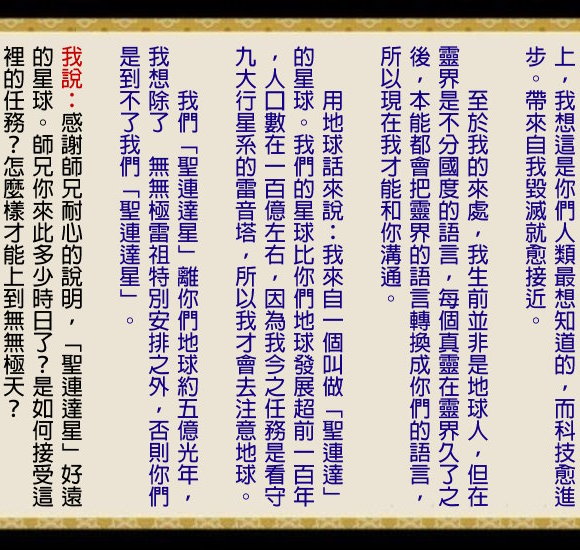 上，我想這是你們人類最想知道的，而科技愈進
步。帶來自我毀滅就愈接近。
至於我的來處，我生前並非是地球人，但在
靈界是不分國度的語言，每個真靈在靈界久了之
後，本能都會把靈界的語言轉換成你們的語言，
所以現在我才能和你溝通。
用地球話來說：我來自一個叫做「聖連達」
的星球。我們的星球比你們地球發展超前一百年
，人口數在一百億左右，因為我今之任務是看守
九大行星系的雷音塔，所以我才會去注意地球。
我們「聖連達星」離你們地球約五億光年，
我想除了　無無極雷祖特別安排之外，否則你們
是到不了我們「聖連達星」。
我說：感謝師兄耐心的說明，「聖連達星」好遠
的星球。師兄你來此多少時日了？是如何接受這
裡的任務？怎麼樣才能上到無無極天？